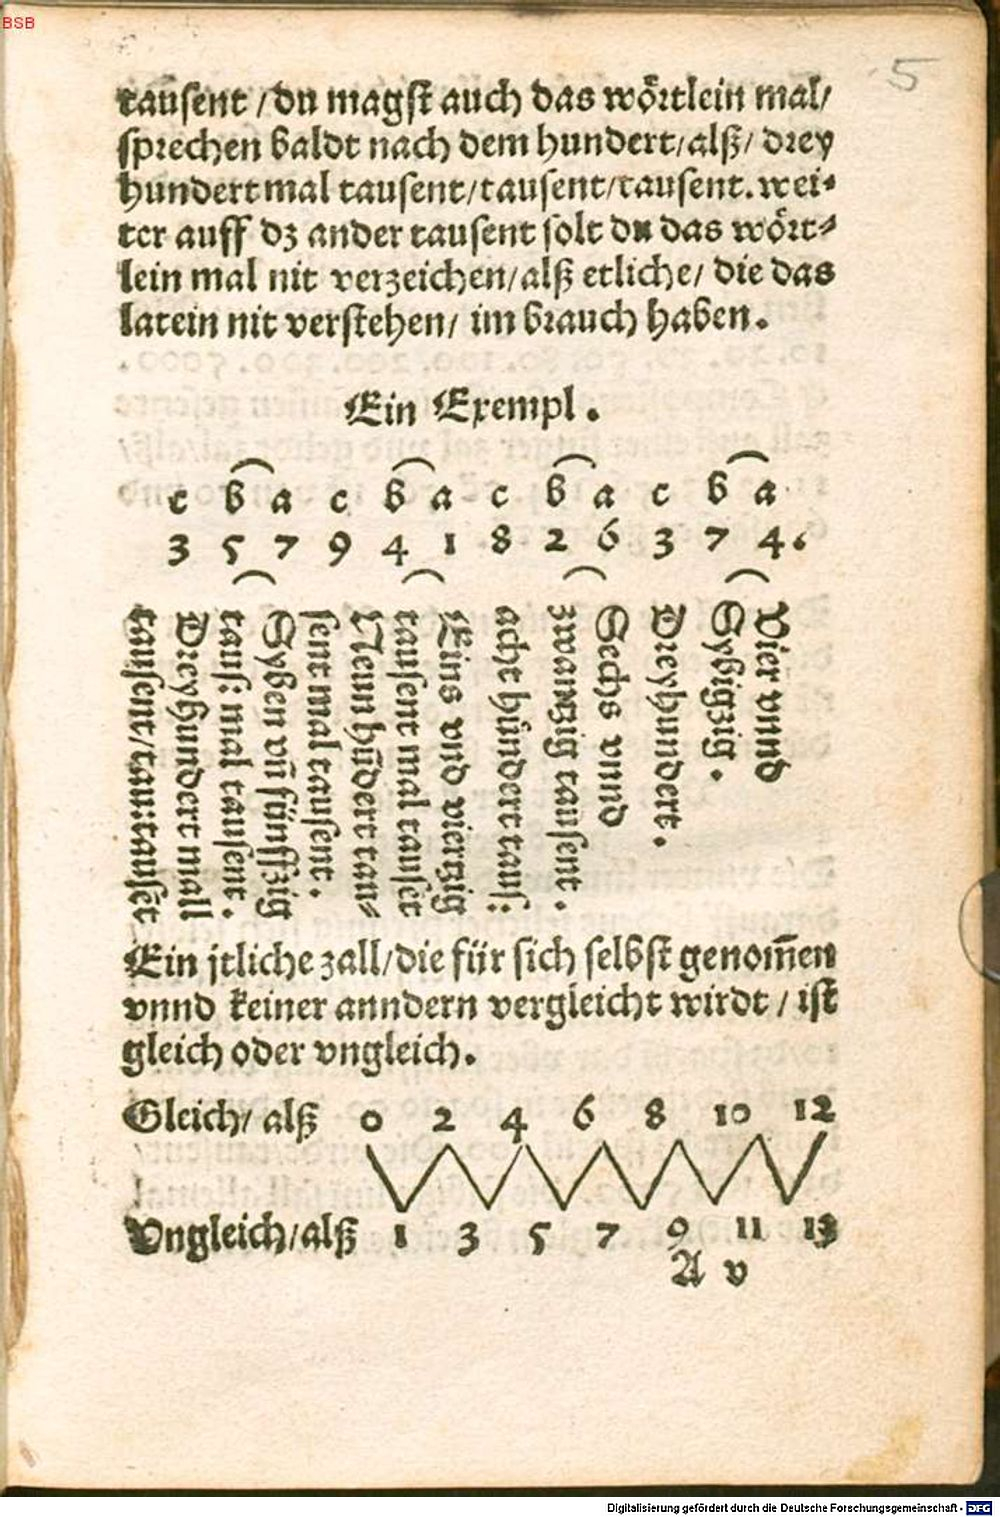 BSB
5
tausent / du magst auch das wörtlein mal/
sprechen baldt nach dem hundert/alß/ drey
hundert mal tausent/tausent/tausent. wei-
ter auff dz ander tausent solt du das wört-
lein mal nit verzeichen/alß etliche/ die das
latein nit verstehen/ im brauch haben.
Ein Exempl.
c b a c b a c b a c b a
3 5 7 9 4 1 8 2 6 3 7 4.
Vier vnnd
Sybigzig.
Dreyhundert.
Sechs vnnd
zwanzig tausent.
acht hůndert taus:
Eins vnd vierzig
tausent mal tausēt
Neun hūdert tau-
sent mal tausent.
Syben vn̄ fünffzig
taus: mal tausent.
Dreyhundert mall
tausent/tau:tausēt
Ein jtliche zall/die für sich selbst genom̄en
vnnd keiner anndern vergleicht wirdt / ist
gleich oder vngleich.
Gleich/ alß 0 2 4 6 8 10 12
Vngleich/alß 1 3 5 7 9 11 13
A v
Digitalisierung gefördert durch die Deutsche Forschungsgemeinschaft - DFG